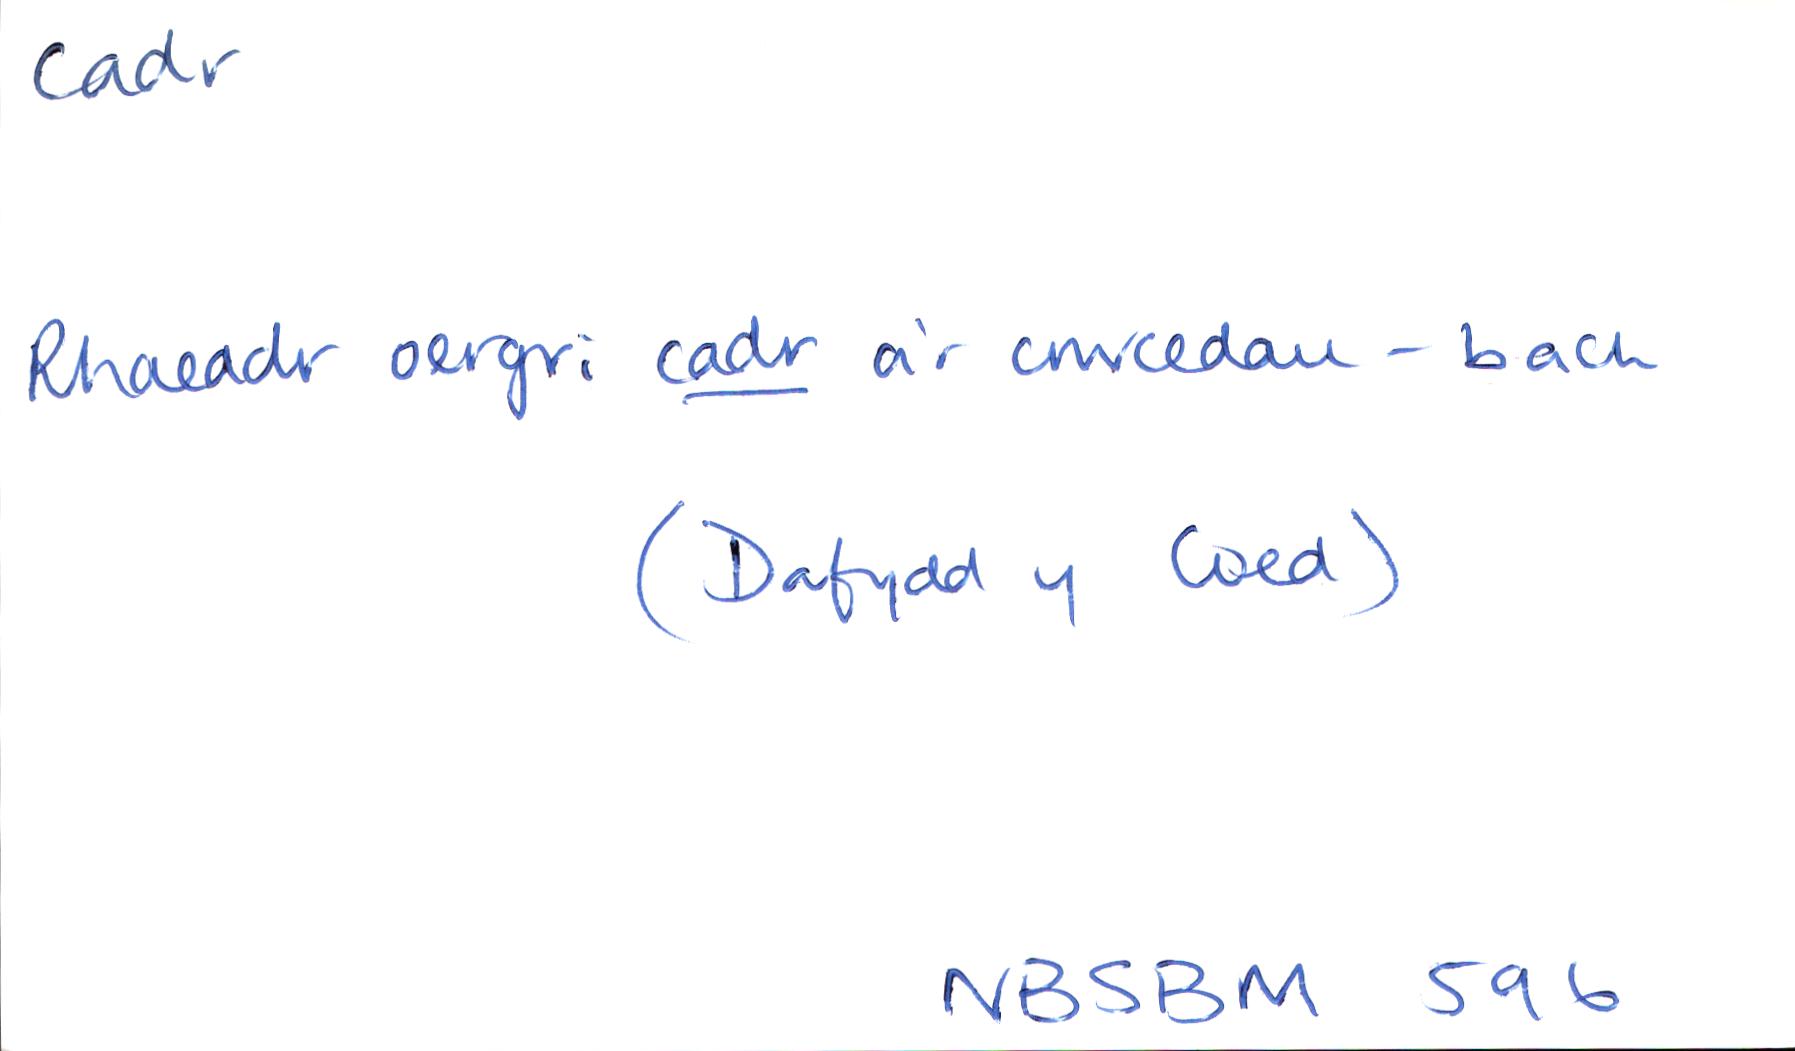 cadr
Rhaeadr oergri cadr a'r cwrcedau - bach
(Dafydd y Coed)
NBSBM 596